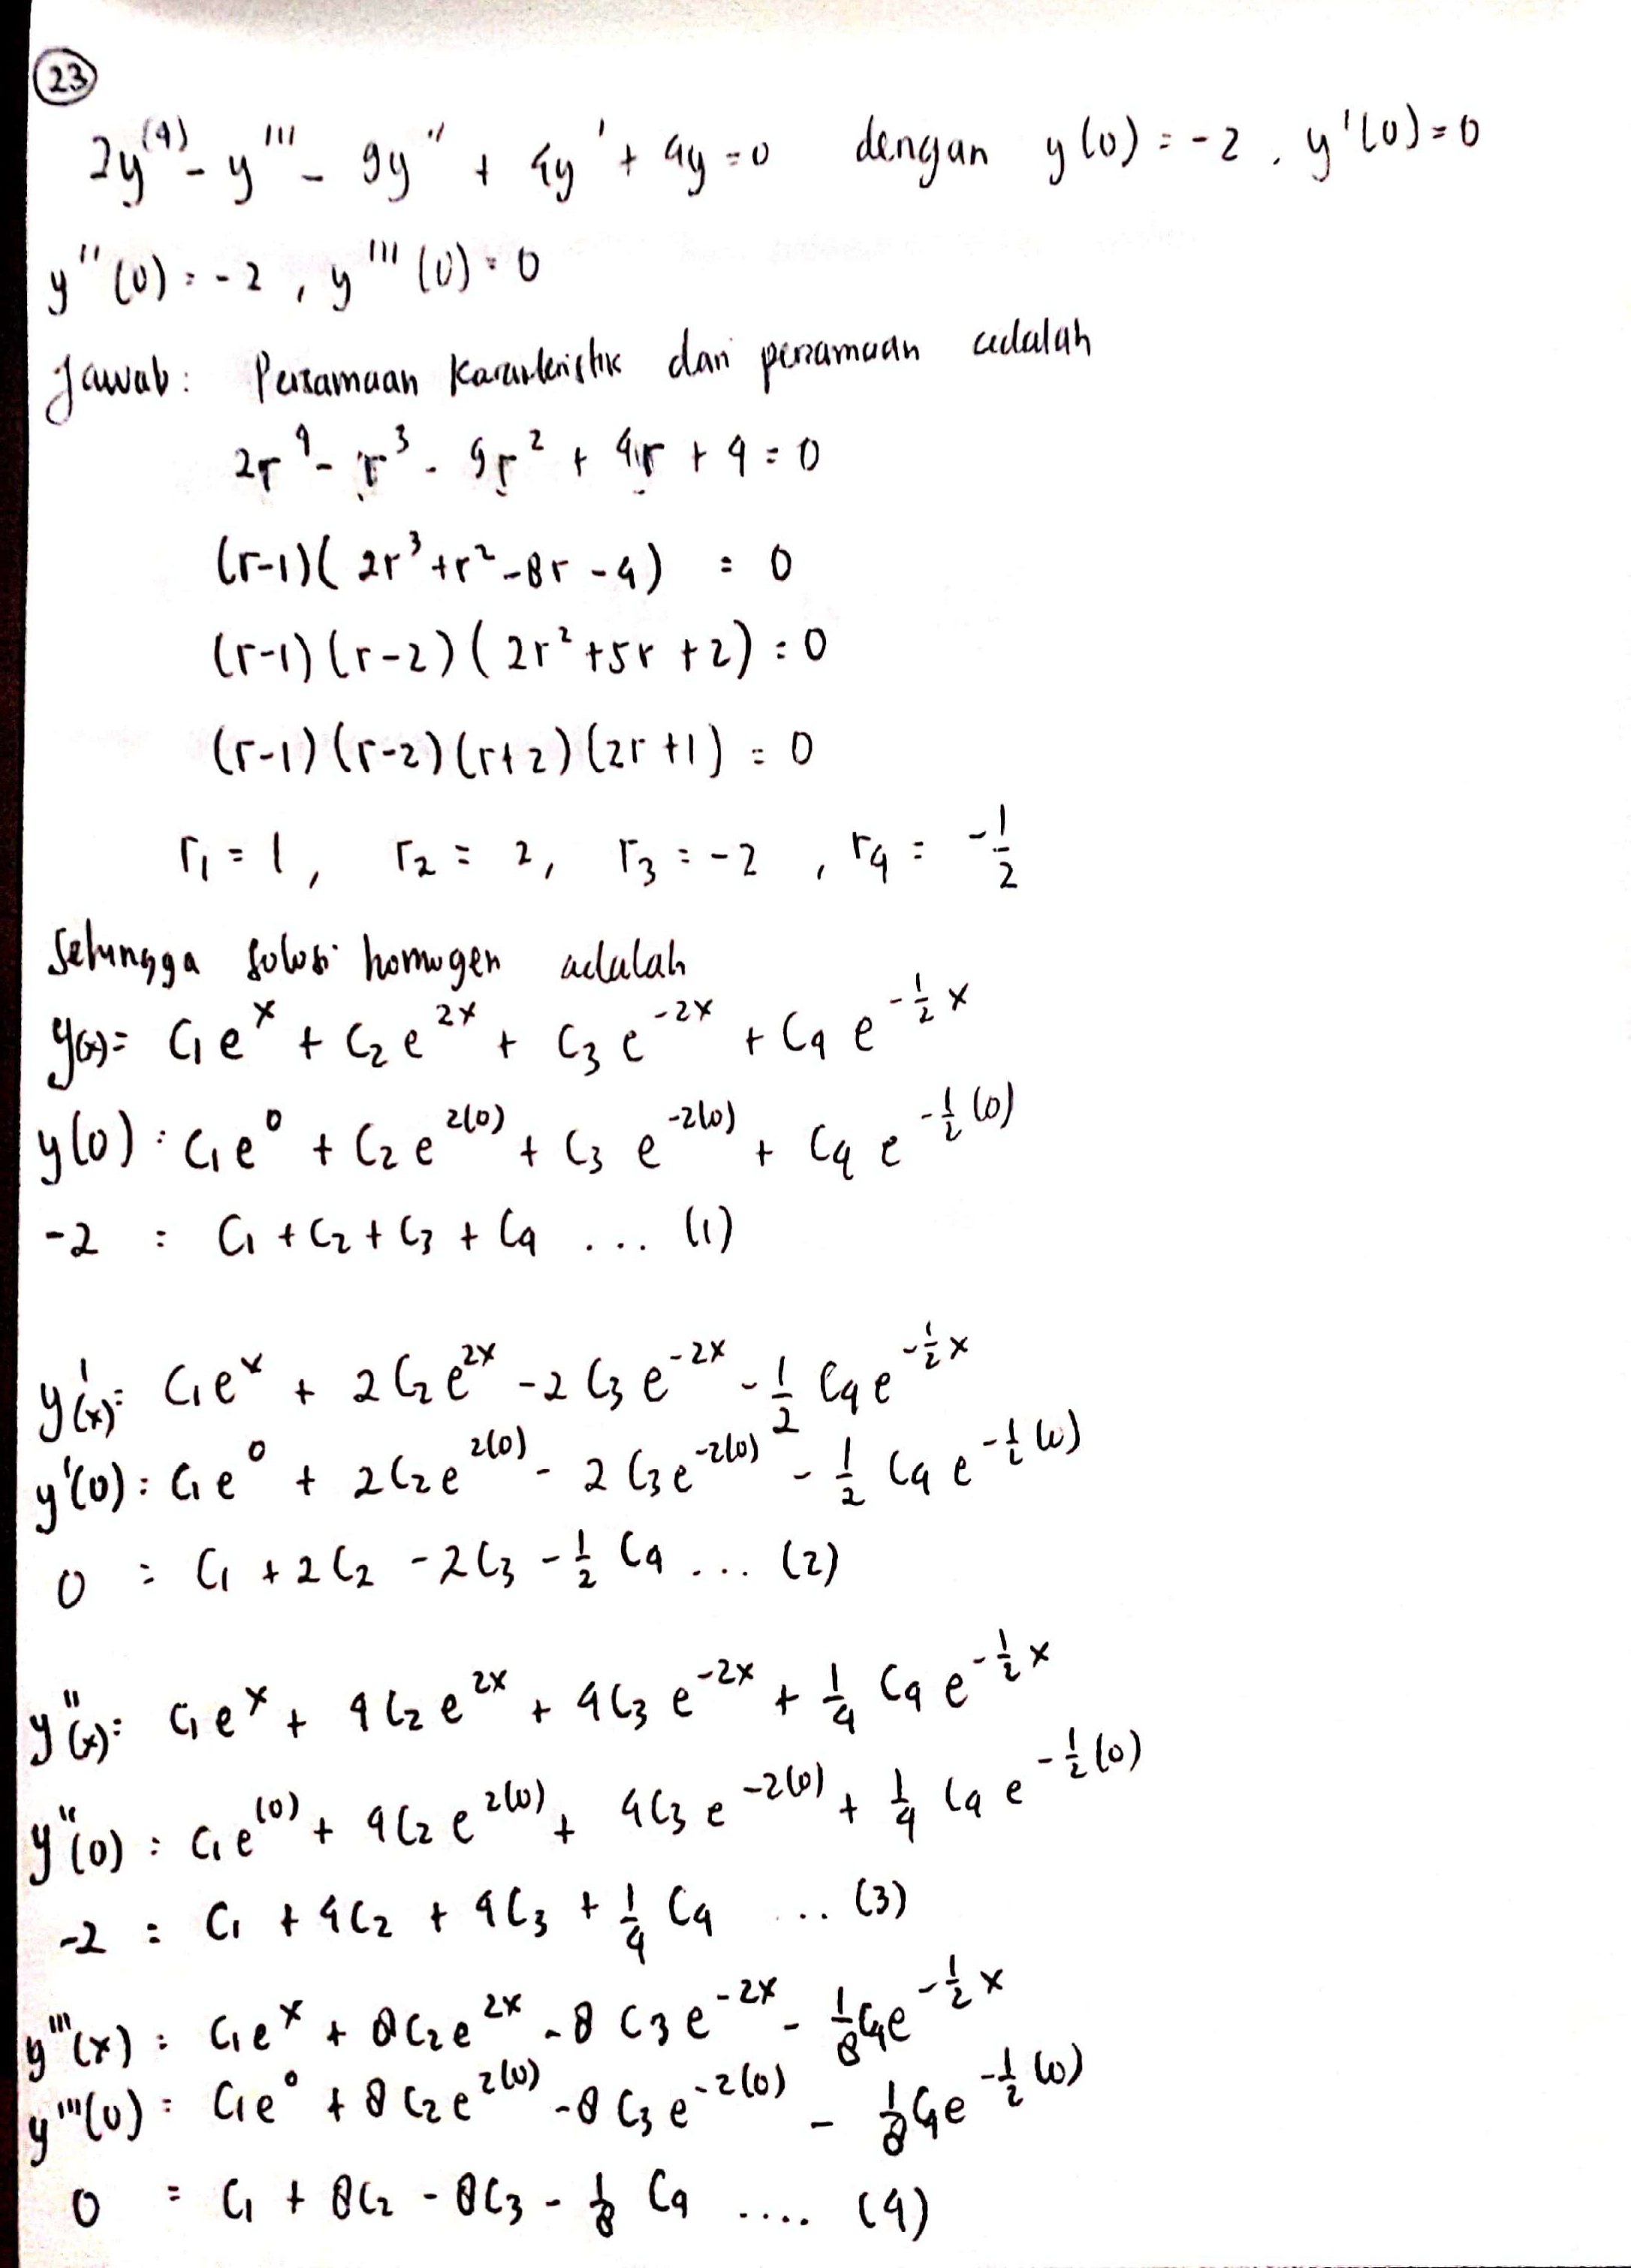 23
2y⁽⁴⁾ - y''' - 9y'' + 4y' + 4y = 0 dengan y(0) = -2, y'(0) = 0
y''(0) = -2, y'''(0) = 0
Jawab: Persamaan Karakteristik dari persamaan adalah
2r⁴ - r³ - 9r² + 4r + 4 = 0
(r-1)(2r³+r²-8r-4) = 0
(r-1)(r-2)(2r²+5r+2) = 0
(r-1)(r-2)(r+2)(2r+1) = 0
r₁ = 1, r₂ = 2, r₃ = -2, r₄ = -1/2
Sehingga solusi homogen adalah
y(x) = C₁e^x + C₂e^{2x} + C₃e^{-2x} + C₄e^{-1/2 x}
y(0) = C₁e^0 + C₂e^{2(0)} + C₃e^{-2(0)} + C₄e^{-1/2 (0)}
-2 = C₁ + C₂ + C₃ + C₄ ... (1)
y'(x) = C₁e^x + 2C₂e^{2x} - 2C₃e^{-2x} - 1/2 C₄e^{-1/2 x}
y'(0) = C₁e^0 + 2C₂e^{2(0)} - 2C₃e^{-2(0)} - 1/2 C₄e^{-1/2 (0)}
0 = C₁ + 2C₂ - 2C₃ - 1/2 C₄ ... (2)
y''(x) = C₁e^x + 4C₂e^{2x} + 4C₃e^{-2x} + 1/4 C₄e^{-1/2 x}
y''(0) = C₁e^{(0)} + 4C₂e^{2(0)} + 4C₃e^{-2(0)} + 1/4 C₄e^{-1/2 (0)}
-2 = C₁ + 4C₂ + 4C₃ + 1/4 C₄ .. (3)
y'''(x) = C₁e^x + 8C₂e^{2x} - 8C₃e^{-2x} - 1/8 C₄e^{-1/2 x}
y'''(0) = C₁e^0 + 8C₂e^{2(0)} - 8C₃e^{-2(0)} - 1/8 C₄e^{-1/2 (0)}
0 = C₁ + 8C₂ - 8C₃ - 1/8 C₄ .... (4)